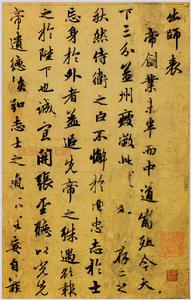 出師表
帝創業未半而中道崩殂今天
下三分益州疲敝此存亡之
秋然侍衛之臣不懈於內忠士
忘身於外者蓋追先帝之殊遇欲報
之於陛下也誠宜開張聖聽以光先
帝遺德恢弘志士之氣不宜妄自菲